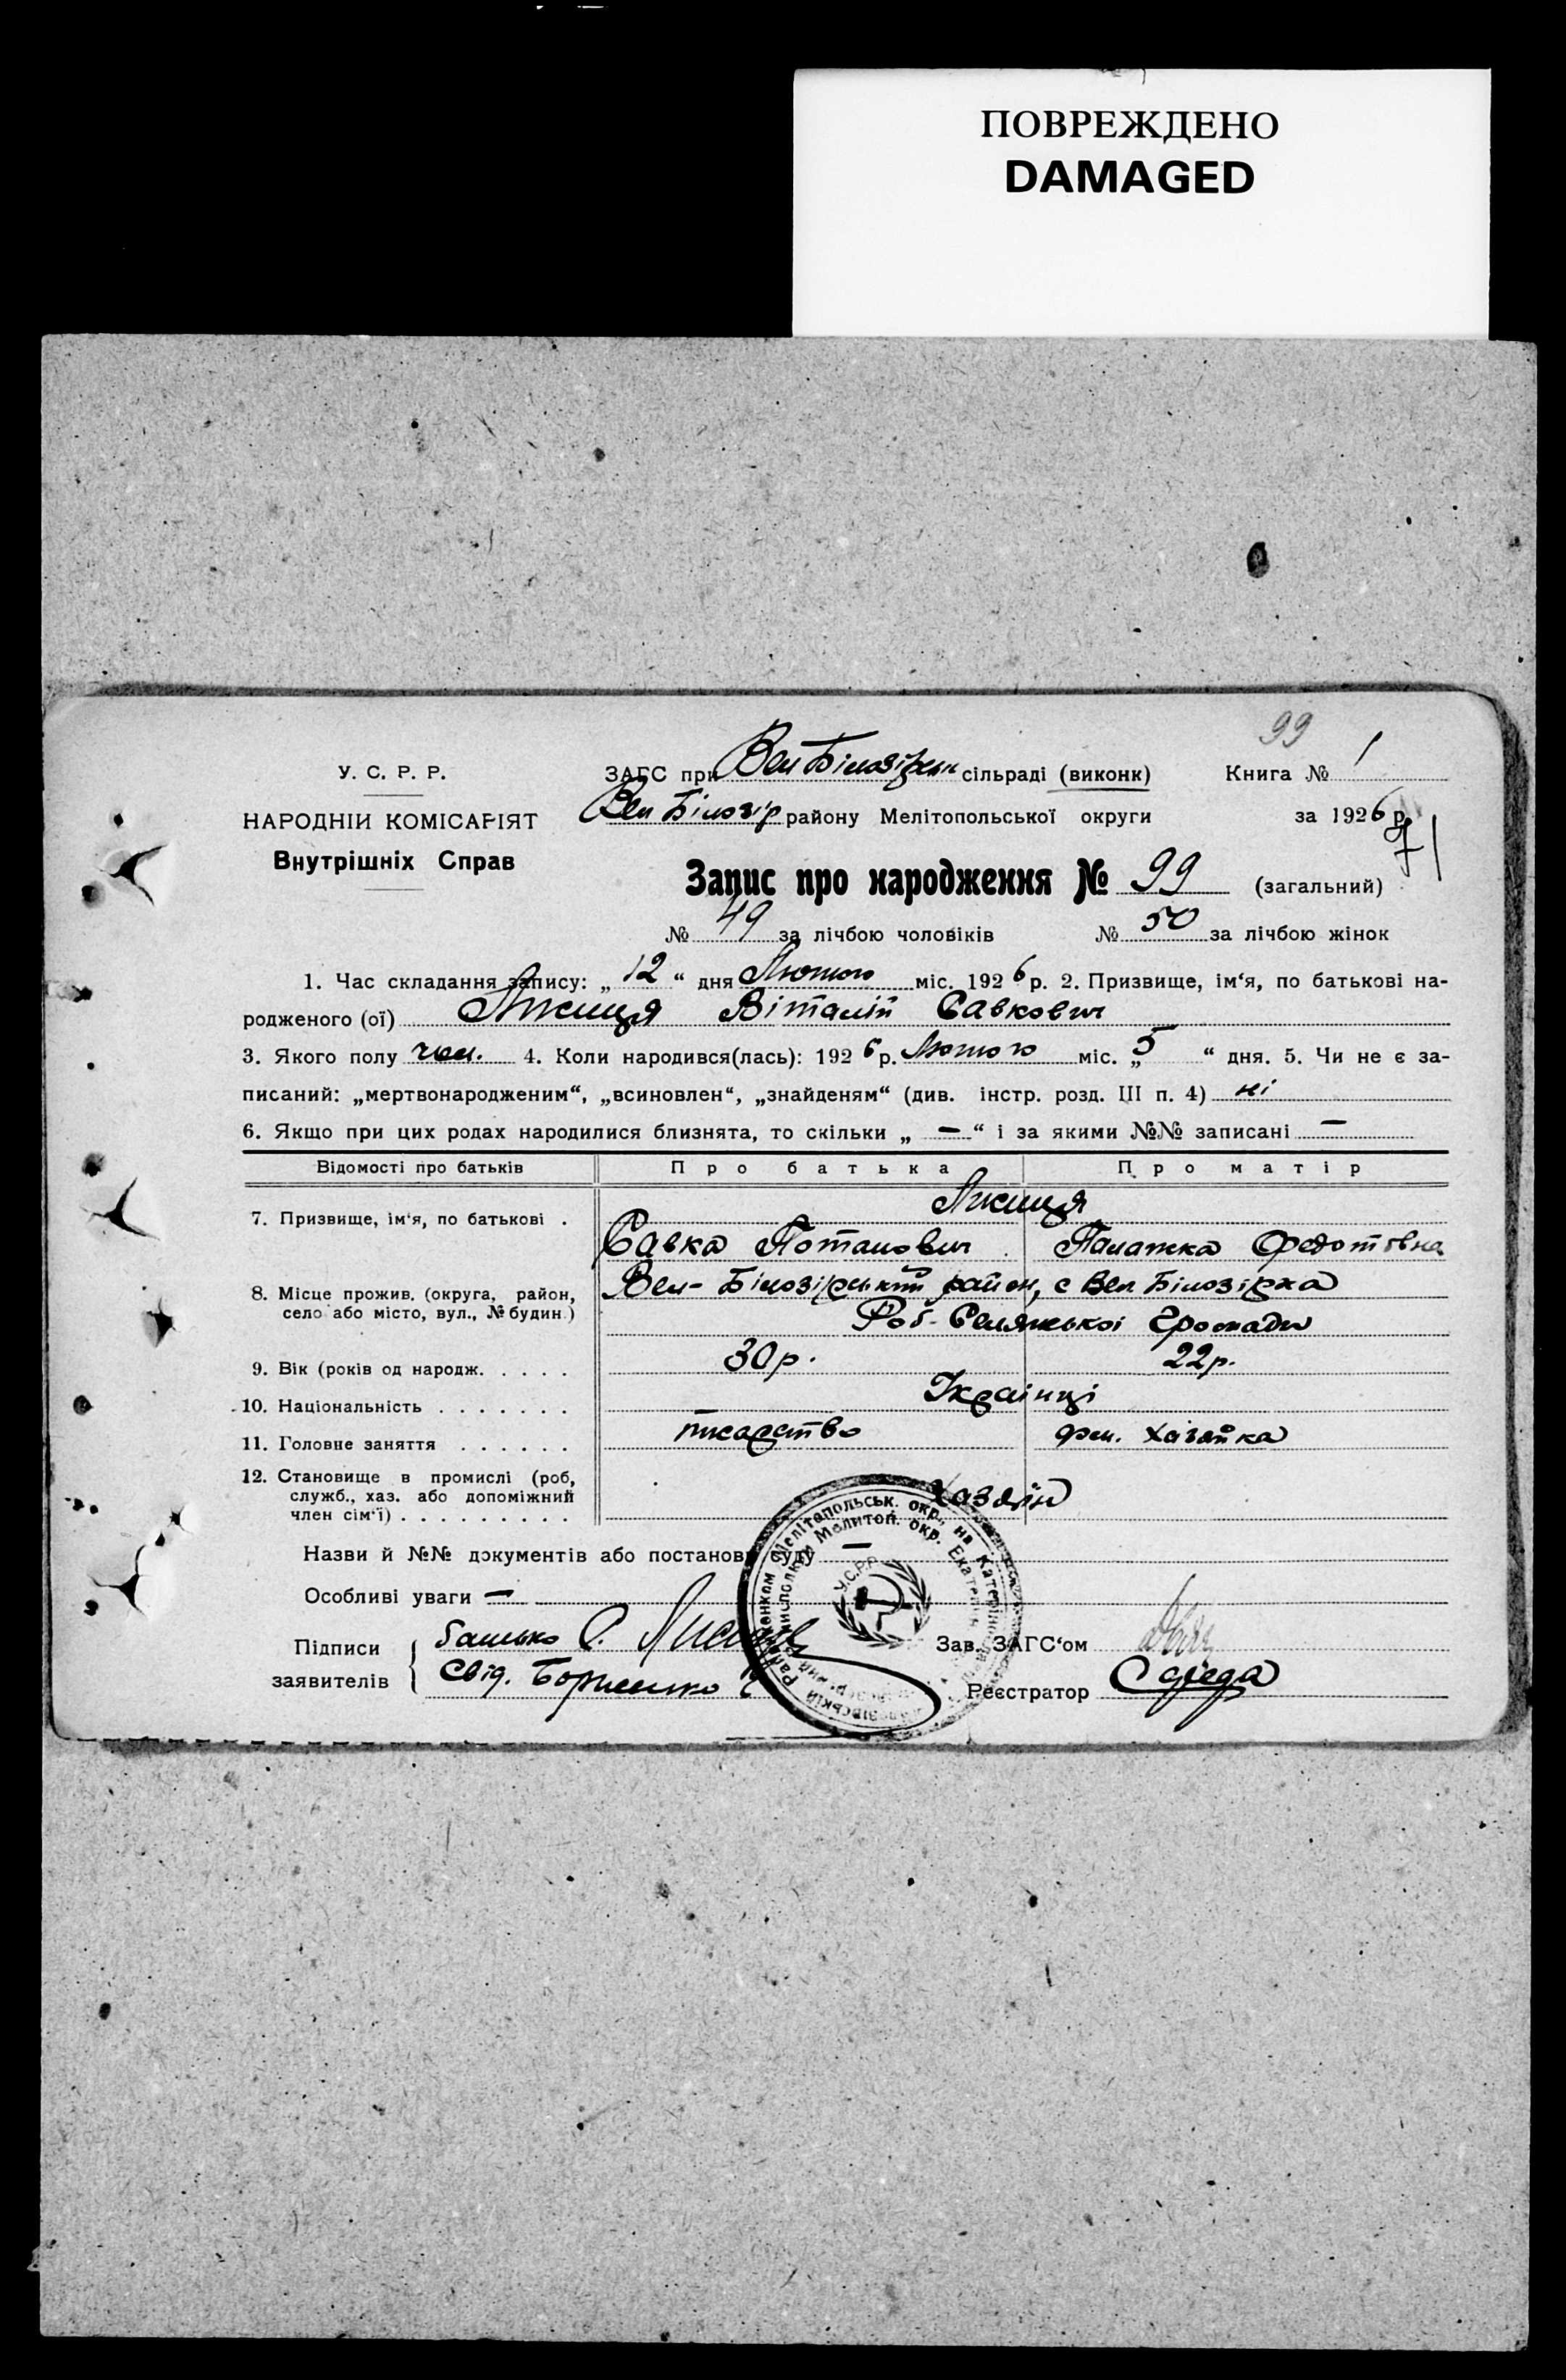 ПОВРЕЖДЕНО
DAMAGED
99
У. С. Р. Р.
ЗАГС при Вел Білозірськ сільраді (виконк)
Книга № 1
НАРОДНІЙ КОМІСАРІЯТ
Вел Білозір району Мелітопольської округи
за 1926 р.
Внутрішніх Справ
71
Запис про народження № 99 (загальний)
№ 49 за лічбою чоловіків № 50 за лічбою жінок
1. Час складання запису: „ 12 “ дня Лютого міс. 1926 р. 2. Призвище, ім‘я, по батькові на-
родженого (ої) Лисиця Віталій Савкович
3. Якого полу чол. 4. Коли народився(лась): 1926 р. Лютого міс. „ 5 “ дня. 5. Чи не є за-
писаний: „мертвонародженим“, „всиновлен“, „знайденям“ (див. інстр. розд. III п. 4) ні
6. Якщо при цих родах народилися близнята, то скільки „ — “ і за якими №№ записані —
Відомості про батьків Про батька Про матір
Лисиця
7. Призвище, ім‘я, по батькові .
Савка Потапович Палажка Федотовна
8. Місце прожив. (округа, район, село або місто, вул., № будин.)
Вел-Білозірський район, с Вел Білозірка
Роб-Селянської Громади
9. Вік (років од народж. . . . . 30 р. 22 р.
10. Національність . . . . . . . Українці
11. Головне заняття . . . . . . писарство хазайка
12. Становище в промислі (роб,
служб., хаз. або допоміжний
член сім‘ї) . . . . . . . . . Хазяїн
Назви й №№ документів або постанови суду —
Особливі уваги —
Підписи заявителів
батько С. Лисиця
Свід. Борисенко
У.С.Р.Р.
Зав. ЗАГС‘ом
Реєстратор Середа